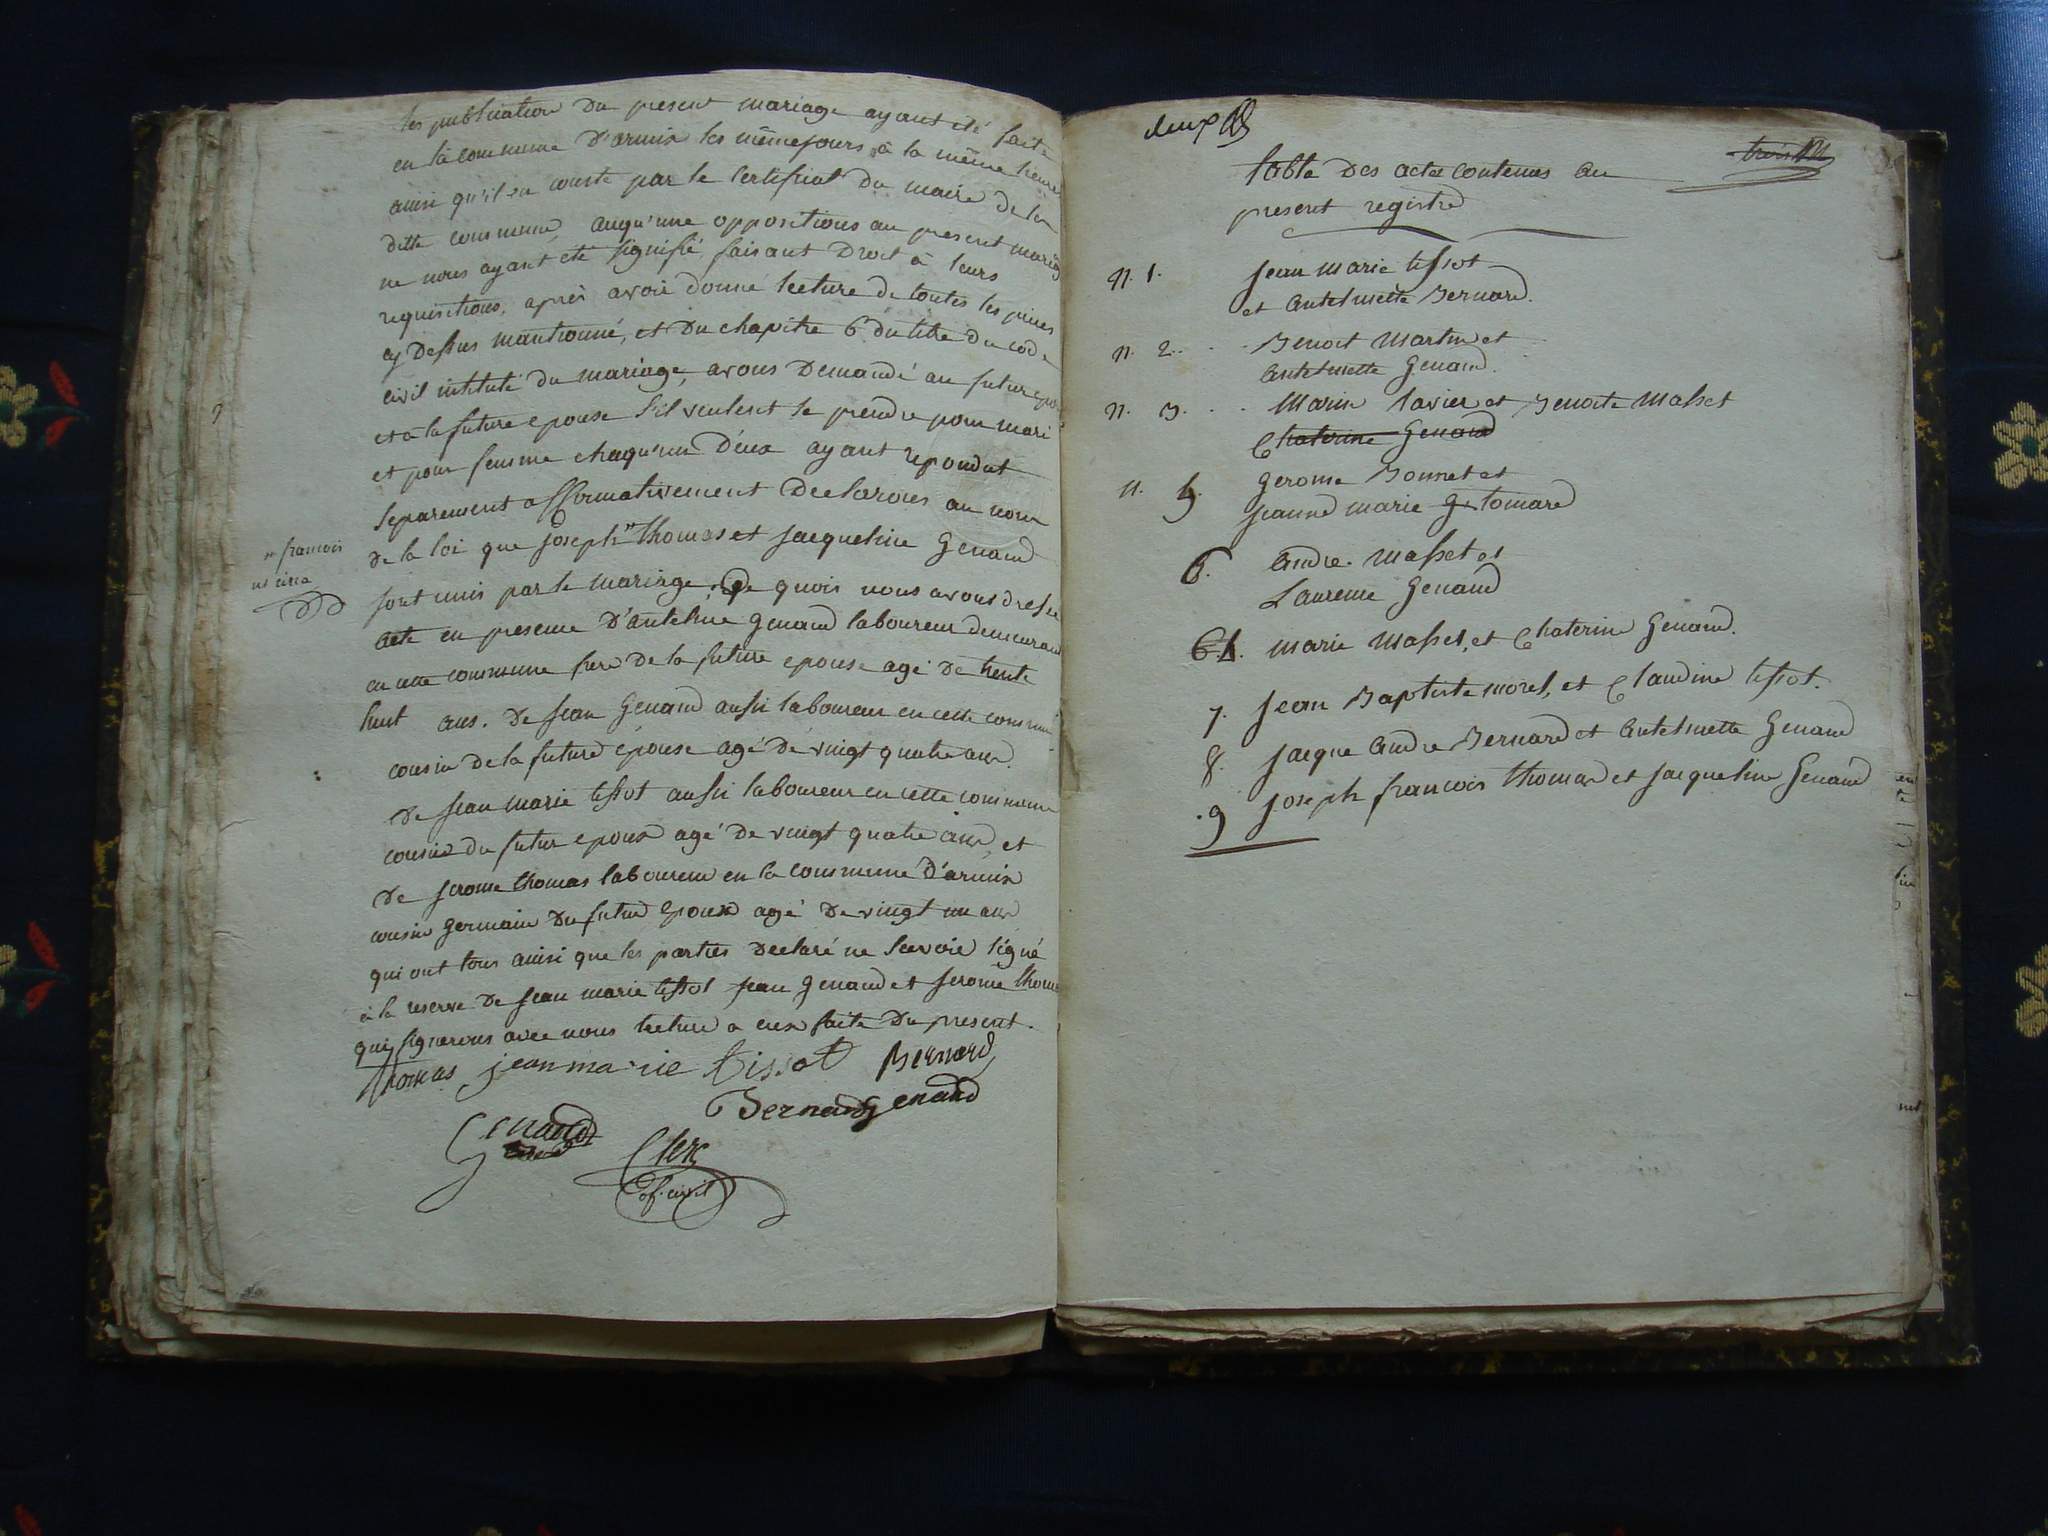 les publication du present mariage ayant été faite
en la commune d'armix les même jours à la même heure
ainsi qu'il en conste par le certificat du maire de la
ditte commune, auqu'une oppositions au present mariag
ne nous ayant été signifié, faisant droit à leurs
requisitions, après avoir donné lecture de toutes les pieces
cy dessus mantionné, et du chapitre 6 du titre du code
civil intitulé du mariage, avons demandé au futur epoux
et à la future epouse s'il veulent se prendre pour mari
et pour femme chaqu'un d'eux ayant repondut
separement affirmativement declarons au nom
de la loi que joseph thomas et jacqueline Genaud
francois
sont unis par le mariage, de quois nous avons dressé
acte en presence d'antelme genaud laboureur demeurant
en cette commune frere de la future epouse agé de trente
huit ans. de jean Genaud aussi laboureur en cette commune
cousin de la future épouse agé de vingt quatre ans.
de jean marie tissot aussi laboureur en cette commune
cousin du futur epoux agé de vingt quatre ans, et
de jerome thomas laboureur en la commune d'armix
cousin germain du futur epoux agé de vingt un ans
qui ont tous ainsi que les parties declaré ne savoir signé
à la reserve de jean marie tissot jean genaud et jerome thomas
qui signerons avec nous lecture a eux faite du present.
thomas jean marie tissot Bernard
Bernard Genand
Genaud
Clerc
of. civil
deux
trois
table des actes contenus au
present registre
n. 1. jean marie tissot
et antelmette Bernard.
n. 2. Benoit martin et
antelmette Genaud.
n. 3. marin lavier et Benoite masset
Chaterine Genaud
n. 5. gerome Bonnet et
jeanne marie g tomare
6. andré masset et
Laurence Genaud
6.4. marie masset, et Chaterine Genaud.
7. jean Baptiste morel, et Claudine tissot.
8. jacque andre Bernard et antelmette Genaud
9 joseph francois thomas et jacqueline Genaud